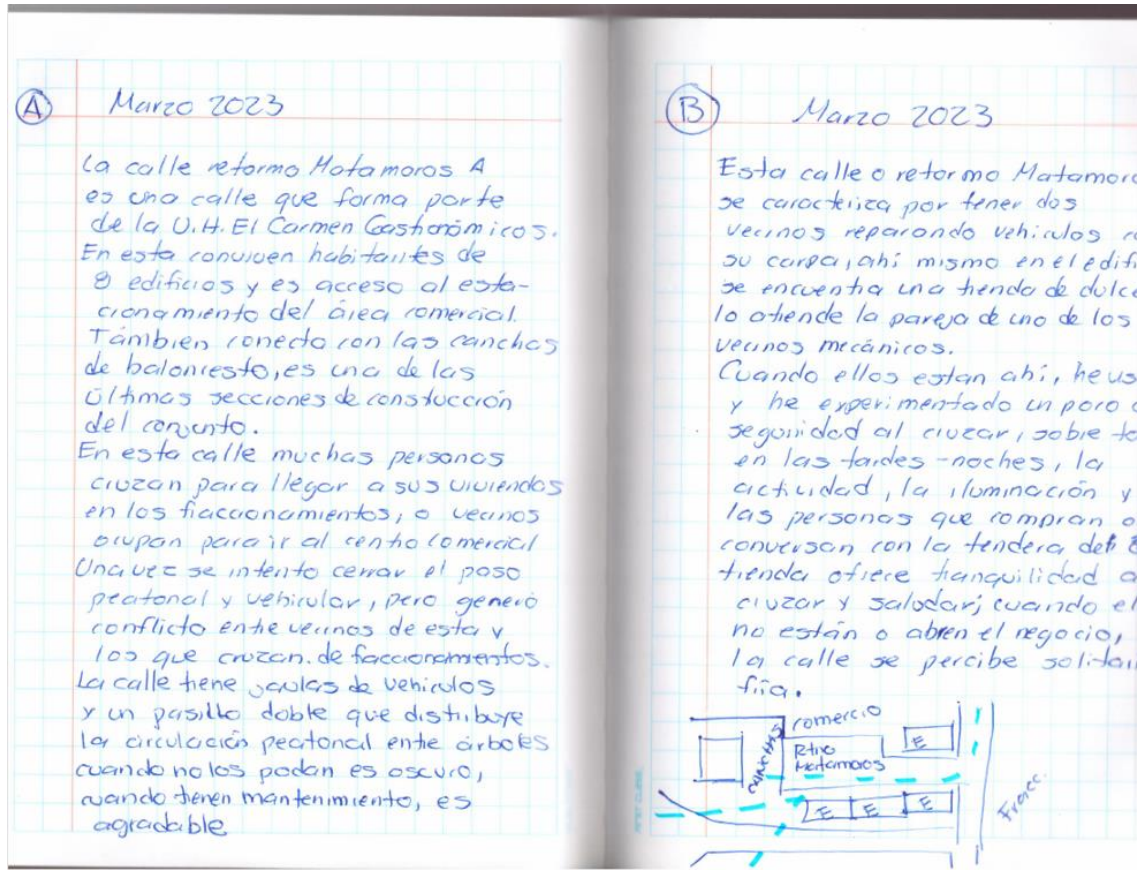 A
Marzo 2023
La calle retorno Matamoros A
es una calle que forma parte
de la U.H. El Carmen Gastronómicos.
En esta conviven habitantes de
8 edificios y es acceso al esta-
cionamiento del área comercial.
Támbien conecta con las canchas
de baloncesto, es una de las
últimas secciones de constucción
del conjunto.
En esta calle muchas personas
cruzan para llegar a sus viviendas
en los fraccionamientos, o vecinos
ocupan para ir al centro comercial
Una vez se intento cerrar el paso
peatonal y vehicular, pero generó
conflicto entre vecinos de esta y
los que cruzan. de faccionamientos.
La calle tiene jaulas de vehiculos
y un pasillo doble que distribuye
la circulación peatonal entre árboles
cuando no los podan es oscuro,
cuando tienen mantenimiento, es
agradable
B
Marzo 2023
Esta calle o retorno Matamoro
se caracteriza por tener dos
vecinos reparando vehiculos
su carpa, ahi mismo en el edifi
se encuentra una tienda de dulce
lo atiende la pareja de uno de los
vecinos mecánicos.
Cuando ellos estan ahí, he us
y he experimentado un poco
seguridad al cruzar, sobre to
en las tardes-noches, la
actividad, la iluminación y
las personas que compran o
conversan con la tendera
tienda ofrece tranquilidad a
cruzar y saludar; cuando el
no están o abren el negocio,
la calle se percibe solitar
fria.
comercio
canchas
Rtno
Matamoros
E
E E E
Fracc.